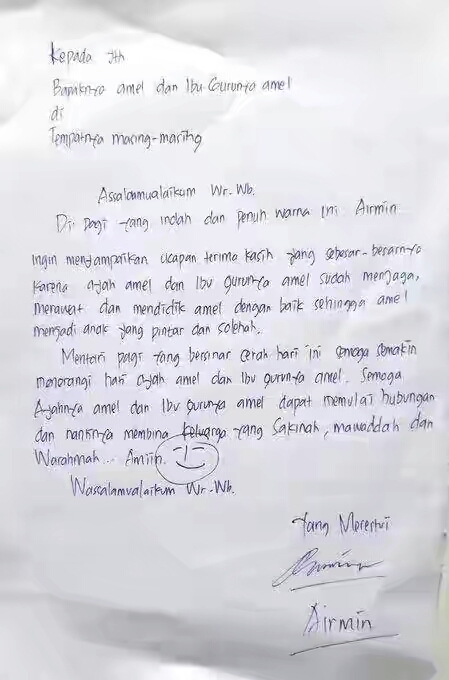 Kepada Yth
Bapaknya amel dan Ibu Gurunya amel
di
Tempatnya masing-masing
Assalamualaikum Wr. Wb.
Di pagi yang indah dan penuh warna ini Airmin
ingin menyampaikan ucapan terima kasih yang sebesar-besarnya
karena ayah amel dan Ibu gurunya amel sudah menjaga,
merawat dan mendidik amel dengan baik sehingga amel
menjadi anak yang pintar dan solehah.
Mentari pagi yang bersinar cerah hari ini semoga semakin
menerangi hari ayah amel dan Ibu gurunya amel. Semoga
Ayahnya amel dan Ibu gurunya amel dapat memulai hubungan
dan nantinya membina keluarga yang Sakinah, mawaddah dan
Warahmah... Amiin.
Wassalamualaikum Wr. Wb.
Yang Merestui
Airmin